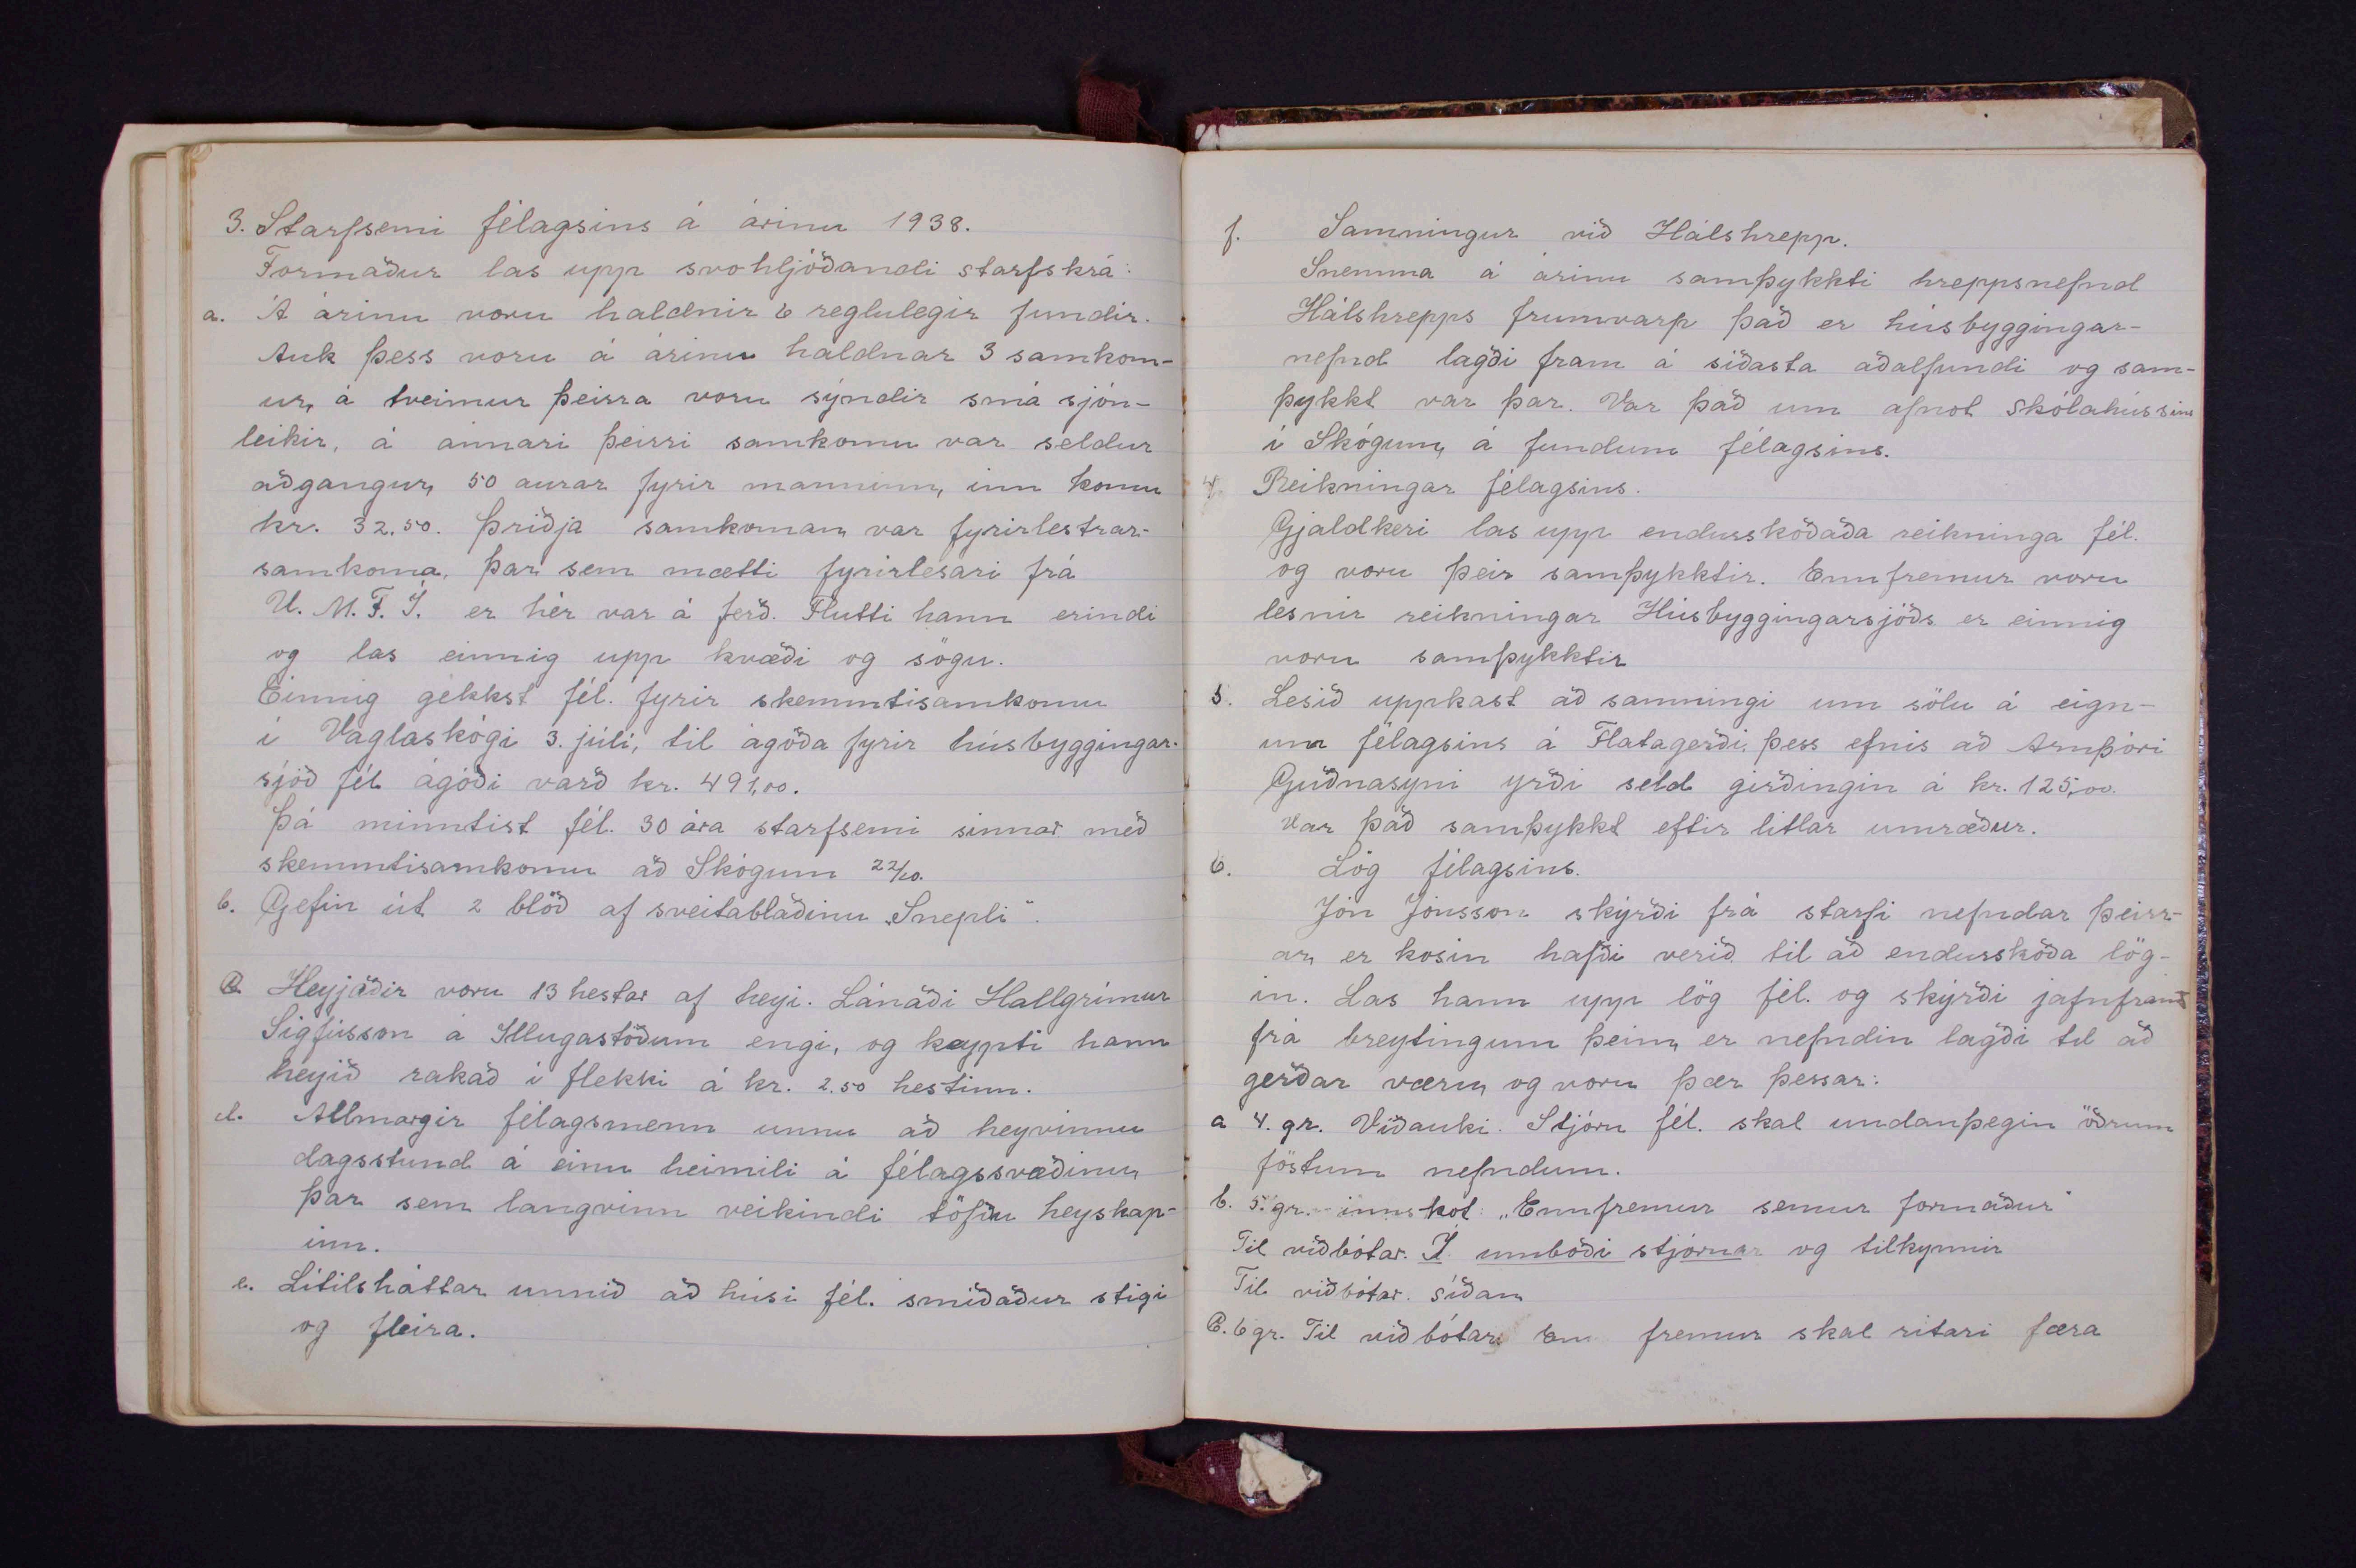 3. Starfsemi félagsins á árinu 1938.
Formaður las upp svohljóðandi starfskrá:
a. Á árinu voru haldnir 6 reglulegir fundir.
Auk þess voru á árinu haldnar 3 samkom-
ur, á tveimur þeirra voru sýndir smá sjón-
leikir, á annari þeirri samkomu var seldur
aðgangur, 50 aurar fyrir manninn, inn komu
kr. 32.50. Þriðja samkoman, var fyrirlestrar-
samkoma, þar sem mætti fyrirlesari frá
U. M. F. Í. er hér var á ferð. Flutti hann erindi
og las einnig upp kvæði og sögu.
Einnig gékkst fél. fyrir skemmtisamkomu
í Vaglaskógi 3. júlí, til ágóða fyrir húsbyggingar-
sjóð fél. ágóði varð kr. 491,00.
Þá minntist fél. 30 ára starfsemi sinnar með
skemmtisamkomu að Skógum 22/10.
b. Gefin út 2 blöð af sveitablaðinu „Snepli".
C Heyjaðir voru 13 hestar af heyi. Lánaði Hallgrímur
Sigfússon á Illugastöðum engi, og keypti hann
heyið rakað í flekki á kr. 2.50 hestinn.
d. Allmargir félagsmenn unnu að heyvinnu
dagsstund á einu heimili á félagssvæðinu,
þar sem langvinn veikindi töfðu heyskap-
inn.
e. Lítilsháttar unnið að húsi fél. smíðaður stigi
og fleira.
f. Samningur við Hálshrepp.
Snemma á árinu samþykkti hreppsnefnd
Hálshrepps frumvarp það er húsbyggingar-
nefnd lagði fram á síðasta aðalfundi og sam-
þykkt var þar. Var það um afnot skólahússins
í Skógum, á fundum félagsins.
4. Reikningar félagsins.
Gjaldkeri las upp endurskoðaða reikninga fél.
og voru þeir samþykktir. Ennfremur voru
lesnir reikningar Húsbyggingarsjóðs er einnig
voru samþykktir
5. Lesið uppkast að samningi um sölu á eign-
um félagsins á Flatagerði, þess efnis að Arnþóri
Guðnasyni yrði seld girðingin á kr. 125,00.
Var það samþykkt eftir litlar umræður.
6. Lög félagsins.
Jón Jónsson skýrði frá starfi nefndar þeirr-
ar, er kosin hafði verið til að endurskoða lög-
in. Las hann upp lög fél. og skýrði jafnframt
frá breytingum þeim, er nefndin lagði til að
gerðar væru, og voru þær þessar:
a 4. gr. Viðauki. Stjórn fél. skal undanþegin öðrum
föstum nefndum.
b. 5. gr. innskot: „Ennfremur semur formaður"
Til viðbótar. Í umboði stjórnar og tilkynnir
Til viðbótar. síðan
C. 6 gr. Til viðbótar Enn fremur skal ritari færa